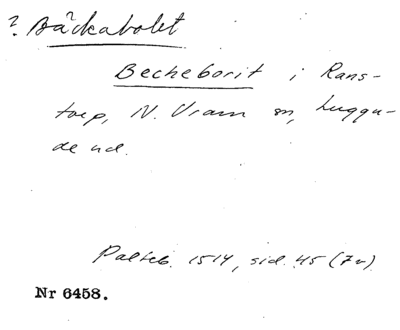 ? Bäckabolet
Becheborit i Rans-
torp, N. Vram sn, Luggu-
de hd.
Palteb. 1514, sid. 45 (7v)
Nr 6458.